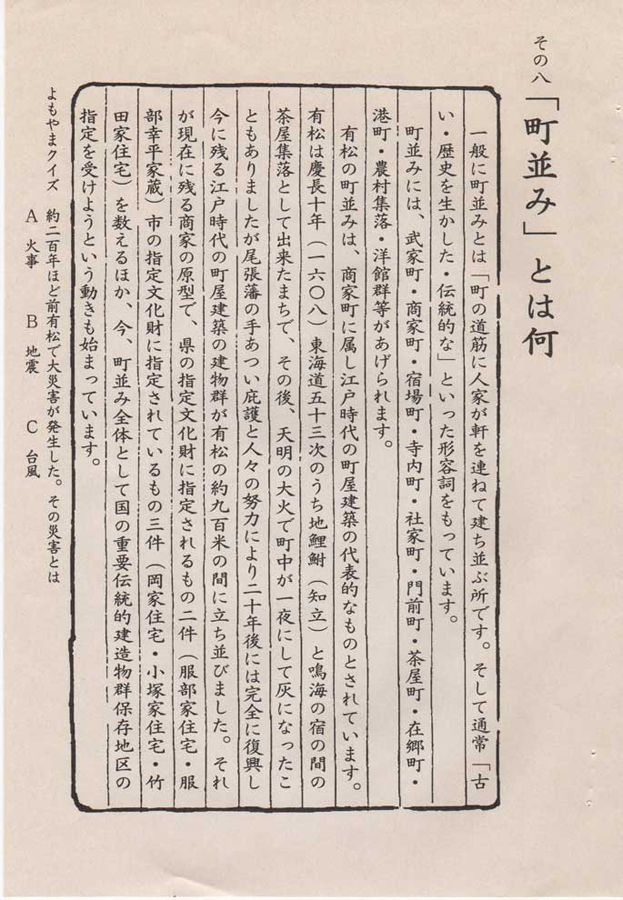 その八「町並み」とは何
一般に町並みとは「町の道筋に人家が軒を連ねて建ち並ぶ所です。そして通常「古
い・歴史を生かした・伝統的な」といった形容詞をもっています。
町並みには、武家町・商家町・宿場町・寺内町・社家町・門前町・茶屋町・在郷町・
港町・農村集落・洋館群等があげられます。
有松の町並みは、商家町に属し江戸時代の町屋建築の代表的なものとされています。
有松は慶長十年（一六〇八）東海道五十三次のうち地鯉鮒（知立）と鳴海の宿の間の
茶屋集落として出来たまちで、その後、天明の大火で町中が一夜にして灰になったこ
ともありましたが尾張藩の手あつい庇護と人々の努力により二十年後には完全に復興し
今に残る江戸時代の町屋建築の建物群が有松の約九百米の間に立ち並びました。それ
が現在に残る商家の原型で、県の指定文化財に指定されるもの二件（服部家住宅・服
部幸平家蔵）市の指定文化財に指定されているもの三件（岡家住宅・小塚家住宅・竹
田家住宅）を数えるほか、今、町並み全体として国の重要伝統的建造物群保存地区の
指定を受けようという動きも始まっています。
よもやまクイズ 約二百年ほど前有松で大災害が発生した。その災害とは
A 火事 B 地震 C 台風